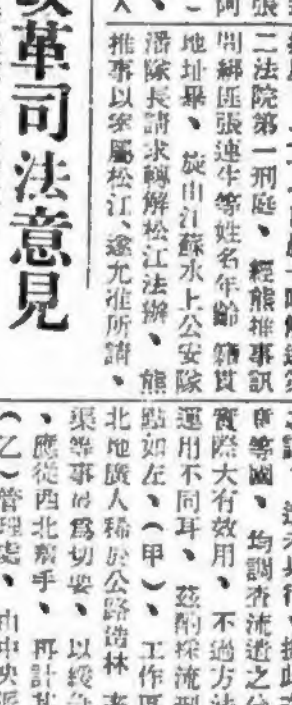 二法院第一刑庭、經熊推事訊
問綁匪張連生等姓名年齡籍貫
地址畢、旋由江蘇水上公安隊
潘隊長請求轉解松江法辦、熊
推事以案屬松江、遂允准所請、
改革司法意見
等國、均調查流遣之
實際大有效用、不過方法
運用不同耳、茲酌採流刑
點如左、（甲）、工作區
北地廣人稀於公路造林
渠等事最爲切要、以綏
、應從西北着手、再計
（乙）管理處、由中央派